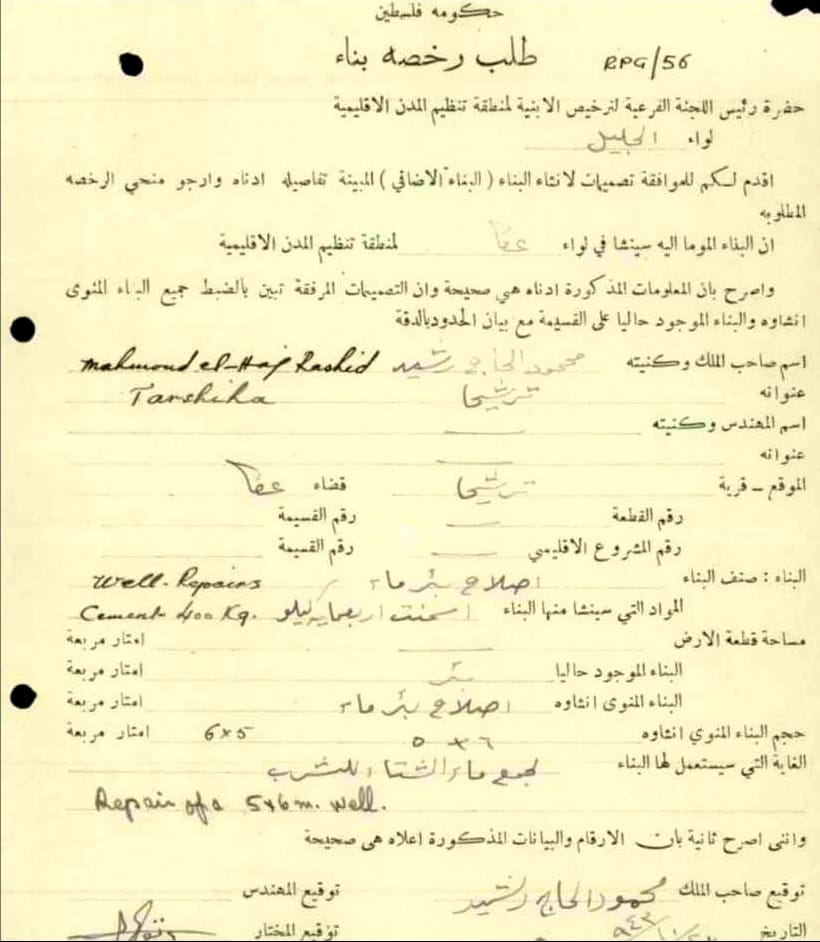 حكومه فلسطين
طلب رخصه بناء RPG/56
حضرة رئيس اللجنة الفرعية لترخيص الابنية لمنطقة تنظيم المدن الاقليمية
لواء الجليل
اقدم لكم للموافقة تصميمات لانشاء البناء ( البناء الاضافي ) المبينة تفاصيله ادناه وارجو منحي الرخصه
المطلوبه
ان البناء الموما اليه سينشا في لواء عكا لمنطقة تنظيم المدن الاقليمية
واصرح بان المعلومات المذكورة ادناه هي صحيحة وان التصميمات المرفقة تبين بالضبط جميع البناء المنوى
انشاوه والبناء الموجود حاليا على القسيمة مع بيان الحدود بالدقة
اسم صاحب الملك وكنيته محمود الحاج رشيد mahmoud el-Haj Rashid
عنوانه ترشيحا Tarshiha
اسم المهندس وكنيته
عنوانه
الموقع – قرية ترشيحا قضاء عكا
رقم القطعة رقم القسيمة
رقم المشروع الاقليمي رقم القسيمة
البناء : صنف البناء اصلاح بئر ماء Well-Repairs
المواد التي سينشا منها البناء اسمنت اربعماية كيلو Cement 400 Kg.
مساحة قطعة الارض امتار مربعة
البناء الموجود حاليا بئر امتار مربعة
البناء المنوى انشاوه اصلاح بئر ماء امتار مربعة
حجم البناء المنوي انشاوه ٦ × ٥ 6×5 امتار مربعة
الغاية التي سيستعمل لها البناء لجمع ماء الشتاء للشرب
Repair of a 5x6 m. well.
وانني اصرح ثانية بان الارقام والبيانات المذكورة اعلاه هي صحيحة
توقيع صاحب الملك محمود الحاج رشيد توقيع المهندس
التاريخ توقيع المختار